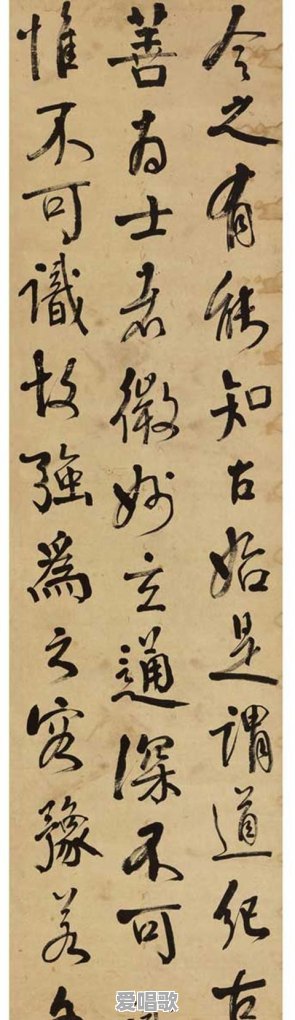 今之有能知古始是謂道紀古
善為士者微妙玄通深不可
惟不可識故強為之容豫若
爱唱歌